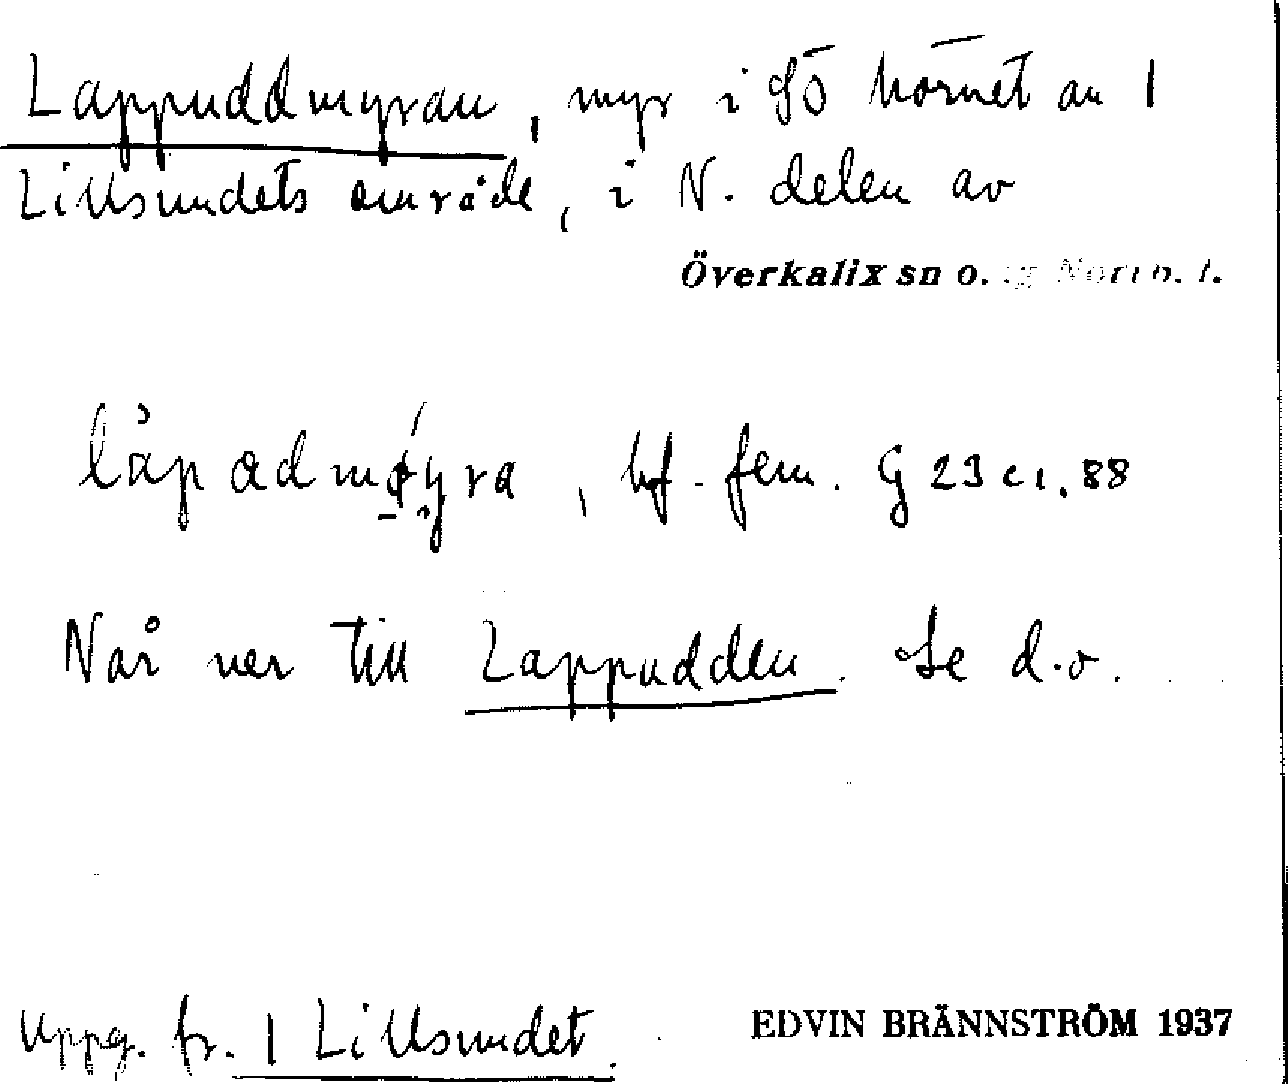 Lappuddmyran, myr i SÖ hörnet av 1
Lillsundets område, i N. delen av
Överkalix sn o. sg Norrb. l.
låpadmøyra, bf. fem. G 23 c1. 88
Når ner till Lappudden. Se d.o.
Uppg. fr. 1 Lillsundet.
EDVIN BRÄNNSTRÖM 1937